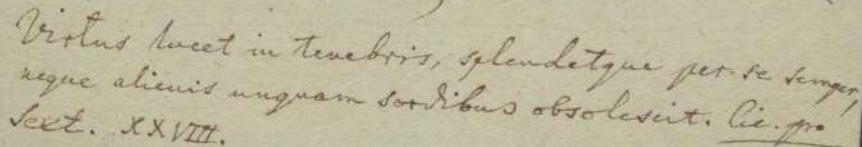 Virtus lucet in tenebris, splendetque per se semper,
neque alienis unquam sordibus obsolescit. Cic. pro
Sext. XXVIII.